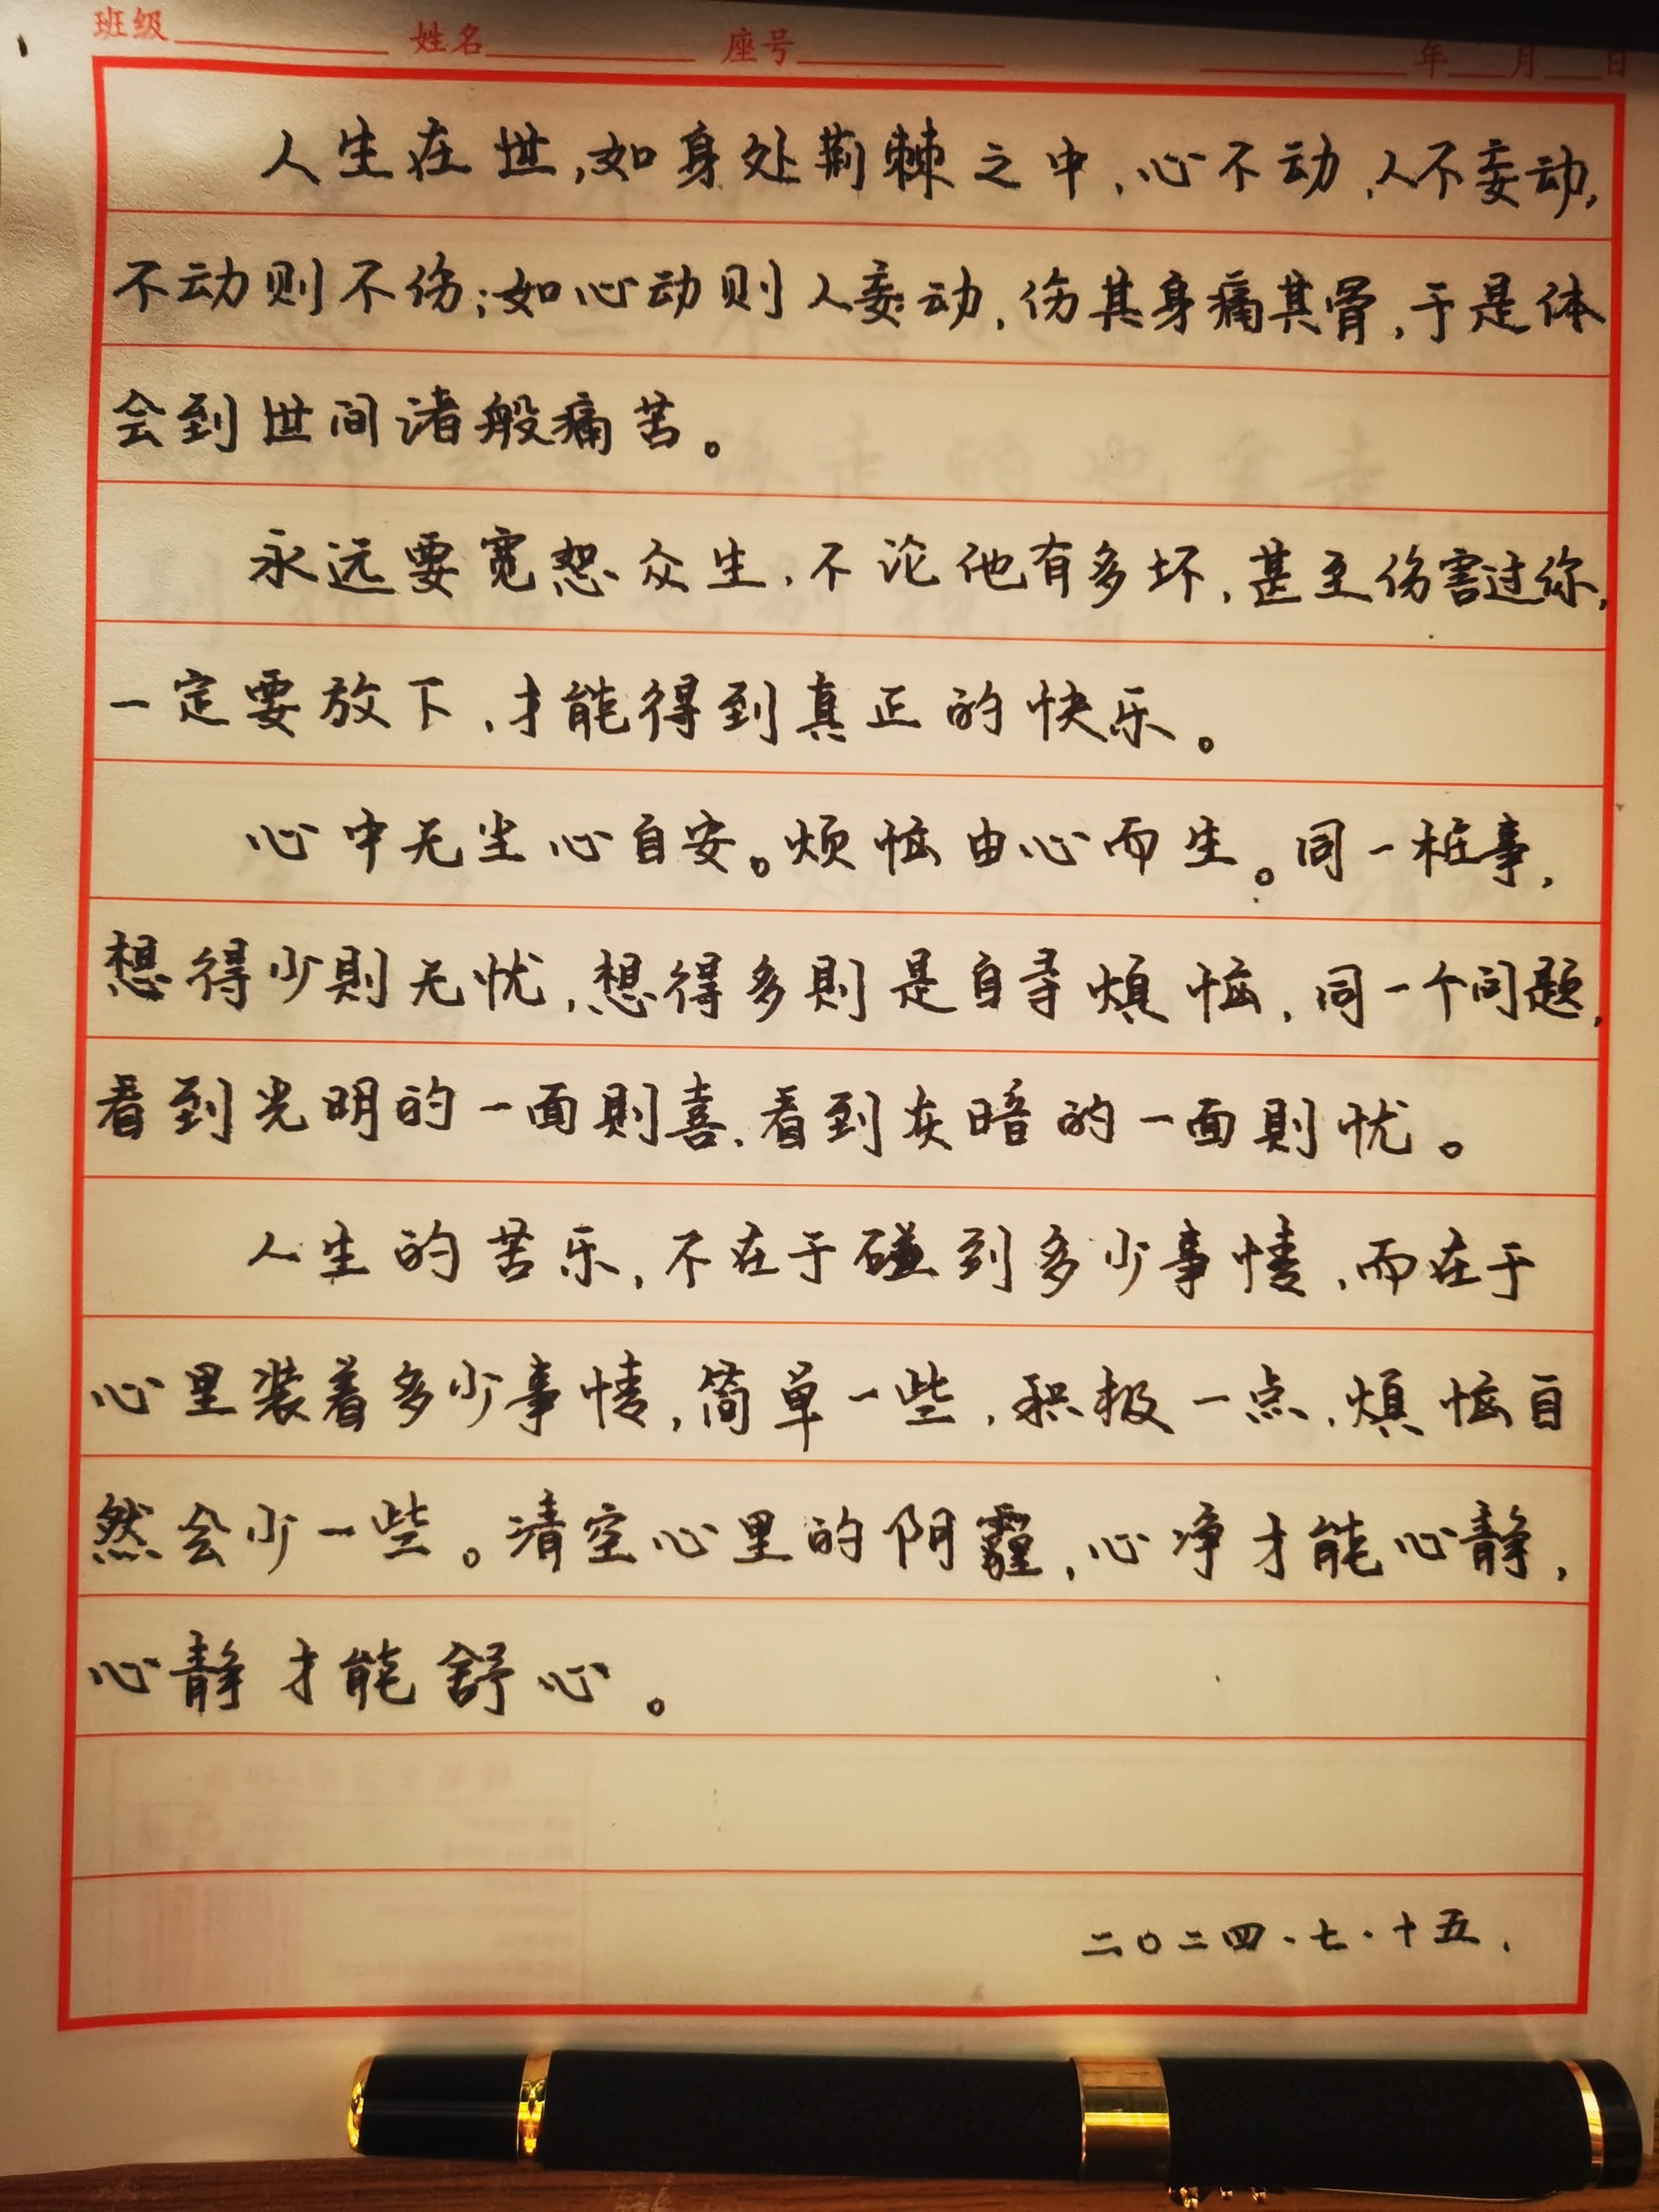 班级 姓名 座号 年 月 日
人生在世，如身处荆棘之中，心不动，人不妄动，
不动则不伤；如心动则人妄动，伤其身痛其骨，于是体
会到世间诸般痛苦。
永远要宽恕众生，不论他有多坏，甚至伤害过你，
一定要放下，才能得到真正的快乐。
心中无尘心自安。烦恼由心而生。同一桩事，
想得少則无忧，想得多則是自寻煩恼，同一个问题，
看到光明的一面則喜，看到灰暗的一面則忧。
人生的苦乐，不在于碰到多少事情，而在于
心里装着多少事情，简单一些，积极一点，煩恼自
然会少一些。清空心里的阴霾，心净才能心静，
心静才能舒心。
二〇二四·七·十五.